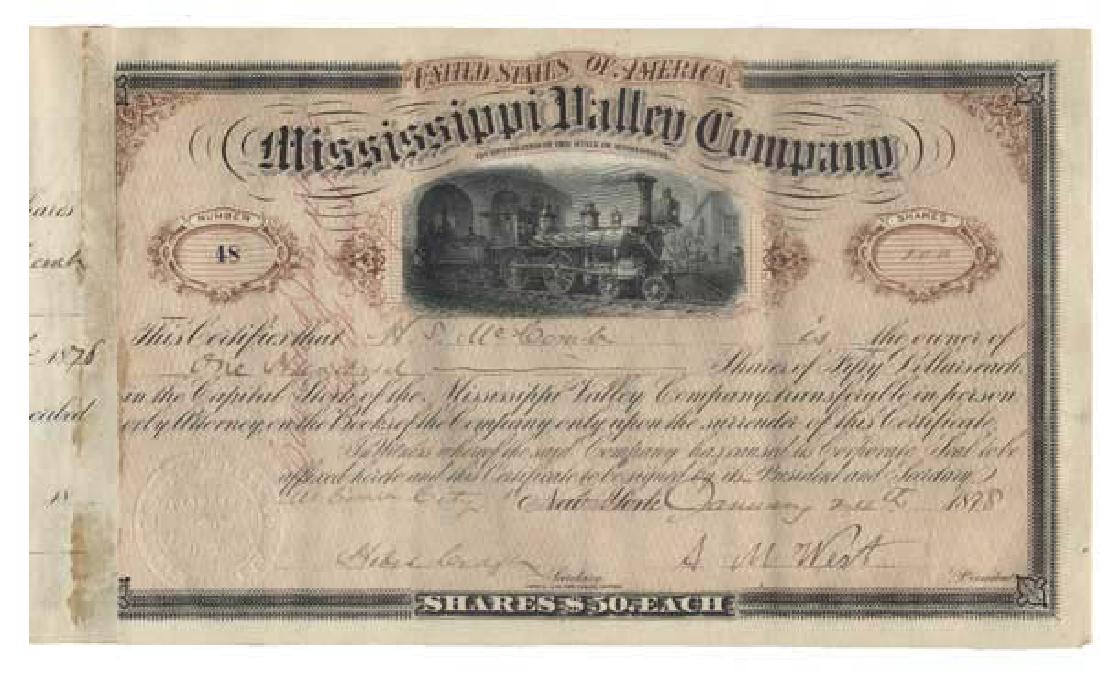 UNITED STATES OF AMERICA
Mississippi Valley Company
NUMBER
48
SHARES
100
This Certifies that H. S. McComb is the owner of
One Hundred Shares of Fifty Dollars each
in the Capital Stock of the Mississippi Valley Company, transferable in person
or by Attorney, on the Books of the Company only upon the surrender of this Certificate.
In Witness whereof the said Company has caused its Corporate Seal to be
affixed hereto and this Certificate to be signed by its President and Secretary
City New York January 1878
S M West
Secretary
President
SHARES $50, EACH
1878
18